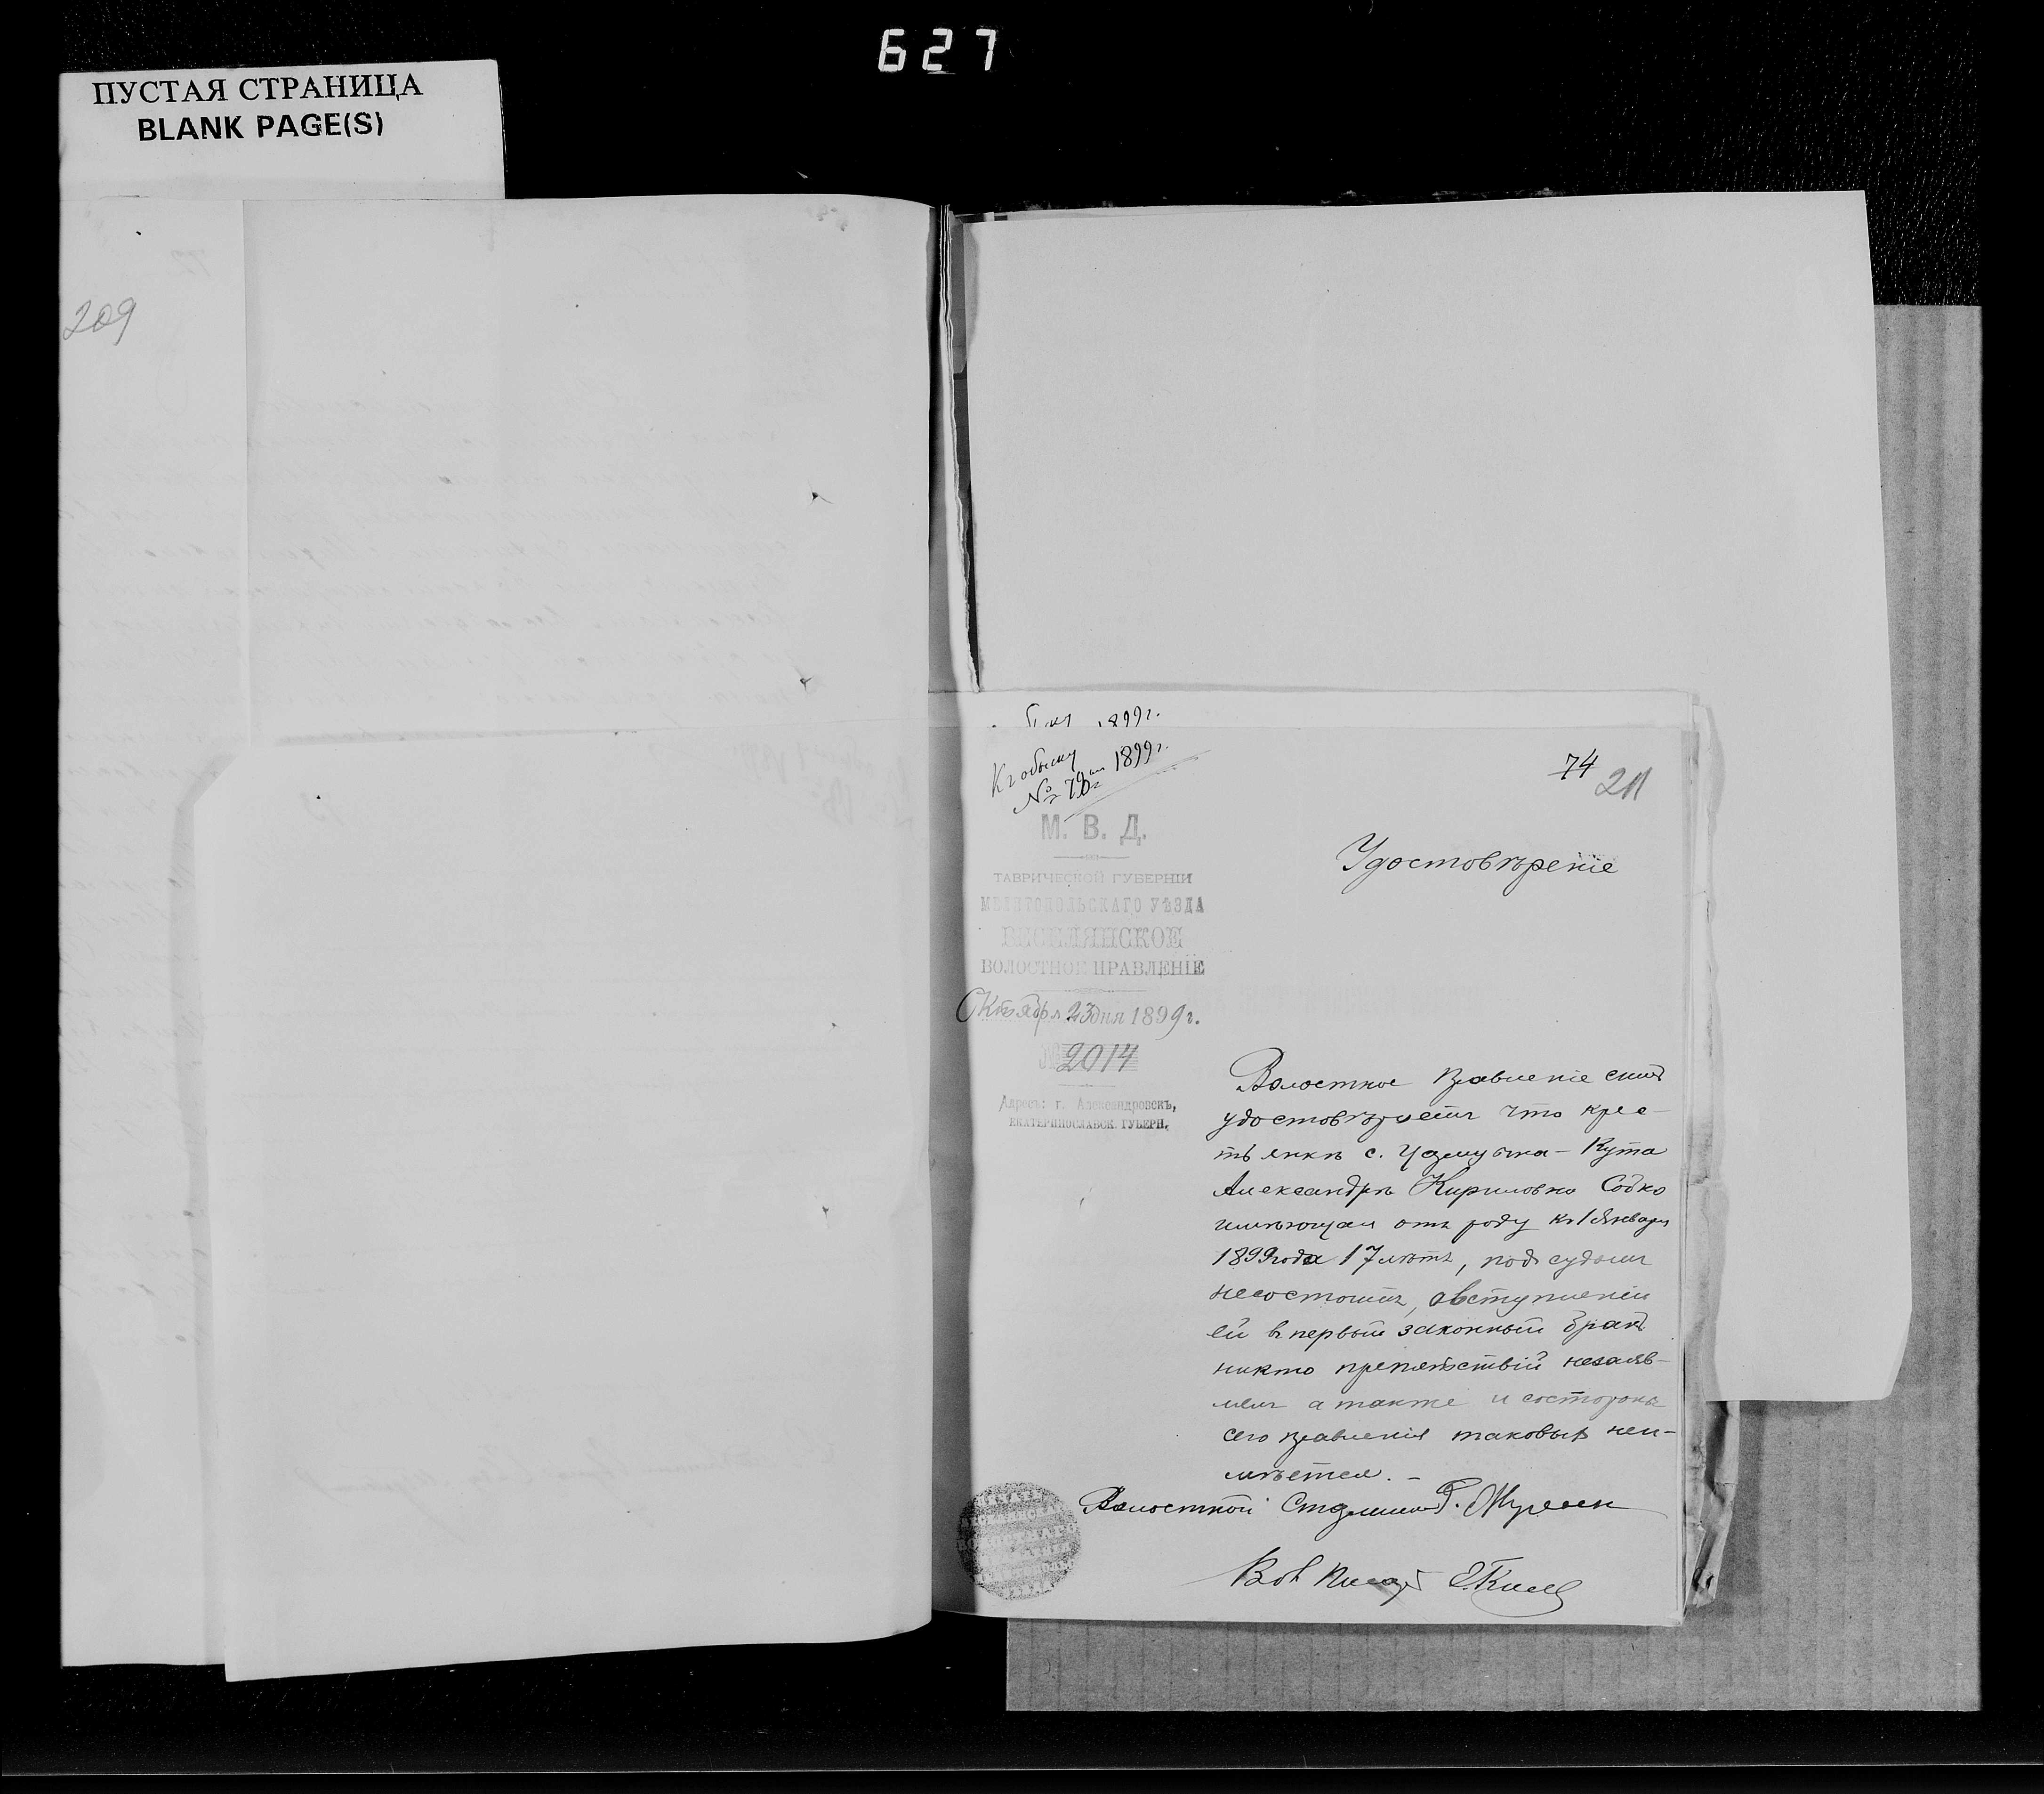 627
ПУСТАЯ СТРАНИЦА
BLANK PAGE(S)
209
1899г.
Къ обыску
№ 70 1899г.
74
211
М. В. Д.
ТАВРИЧЕСКОЙ ГУБЕРНІИ
МЕЛИТОПОЛЬСКАГО УѢЗДА
ВЕСЕЛЯНСКОЕ
ВОЛОСТНОЕ ПРАВЛЕНІЕ
Октября 23 дня 1899 г.
№ 2014
Адресъ: г. Александровскъ,
ЕКАТЕРИНОСЛАВСК. ГУБЕРН.
Удостовѣреніе
Волостное Правленіе симъ
удостовѣряетъ что крес-
тьянка с. Кута
Александра Кириловна Собко
имѣющая отъ роду къ 1 Января
1899 года 17 лѣтъ, подъ судомъ
несостоитъ, о вступленіи
ей въ первый законный бракъ
никто препятствій незаяв-
лялъ а также и состороны
сего правленія таковыхъ неи-
мѣется. -
Волостной Старшина
Вол Писарь